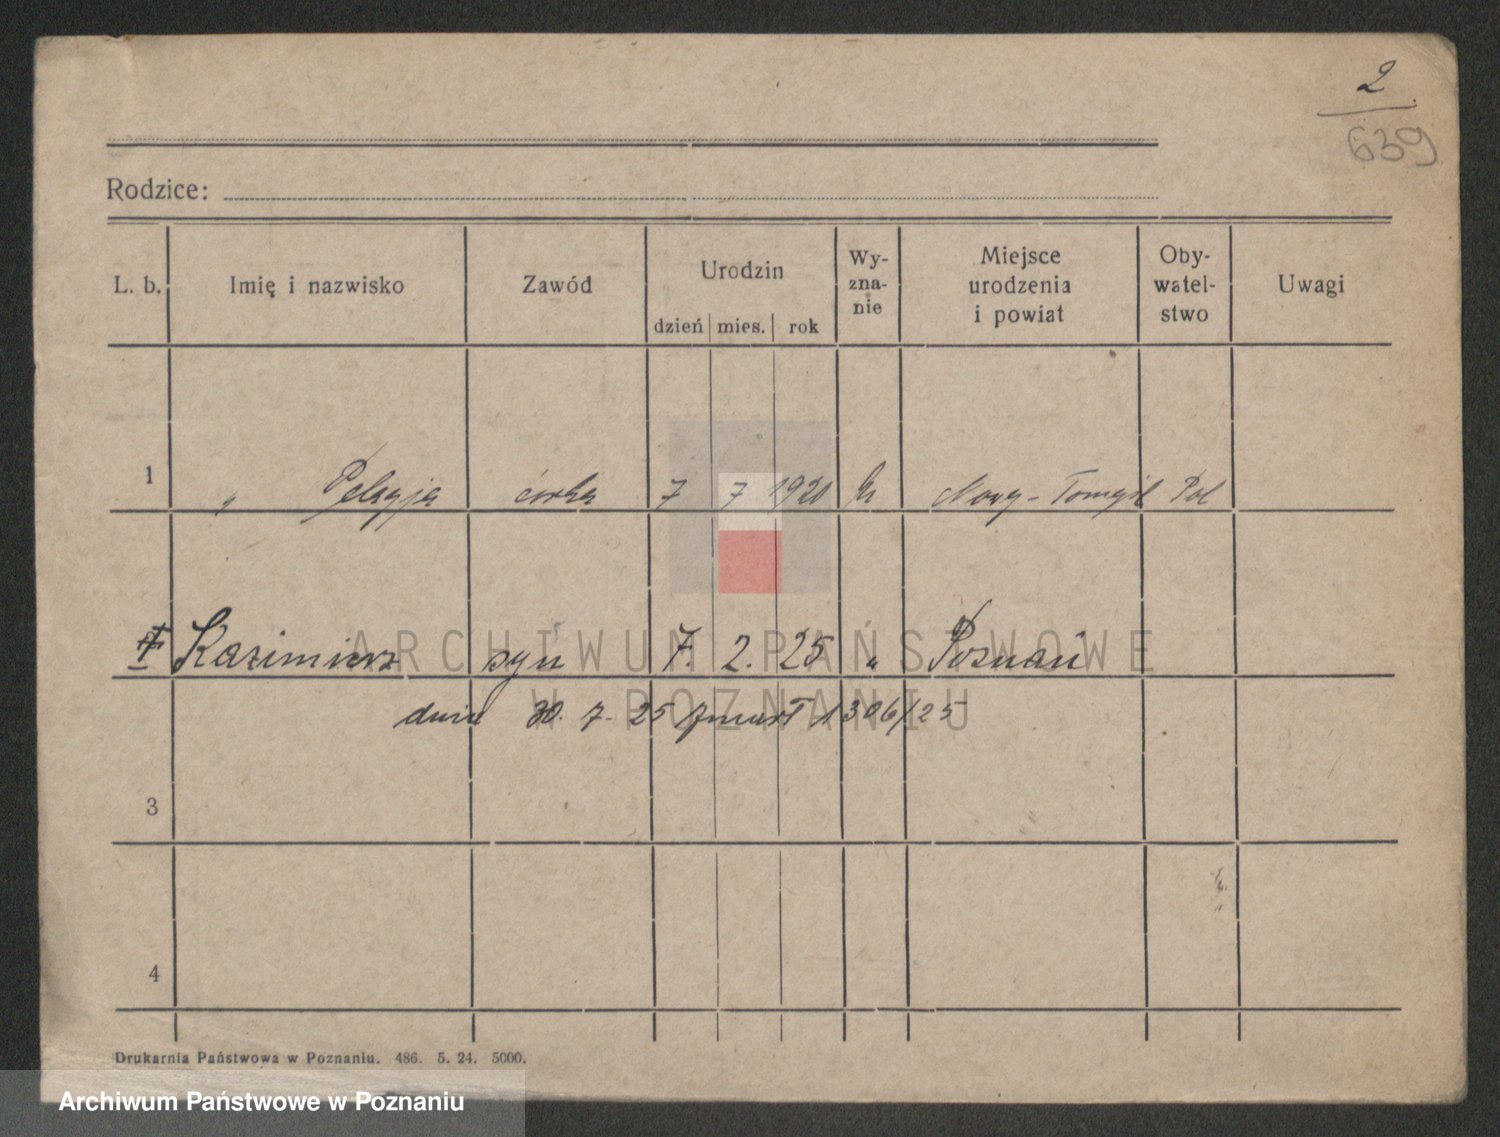 2
639
Rodzice:
L. b. Imię i nazwisko Zawód Urodzin dzień mies. rok Wy-zna-nie Miejsce urodzenia i powiat Oby-watel-stwo Uwagi
1 " Pelagja córka 7 7 1920 Nowy-Tomyśl Pol
Kazimierz syn 7. 2. 25 " Poznań
dnia 30. 7. 25 zmarł 1306/25
3
4
Drukarnia Państwowa w Poznaniu. 486. 5. 24. 5000.
ARCHIWUM PAŃSTWOWE
W POZNANIU
Archiwum Państwowe w Poznaniu